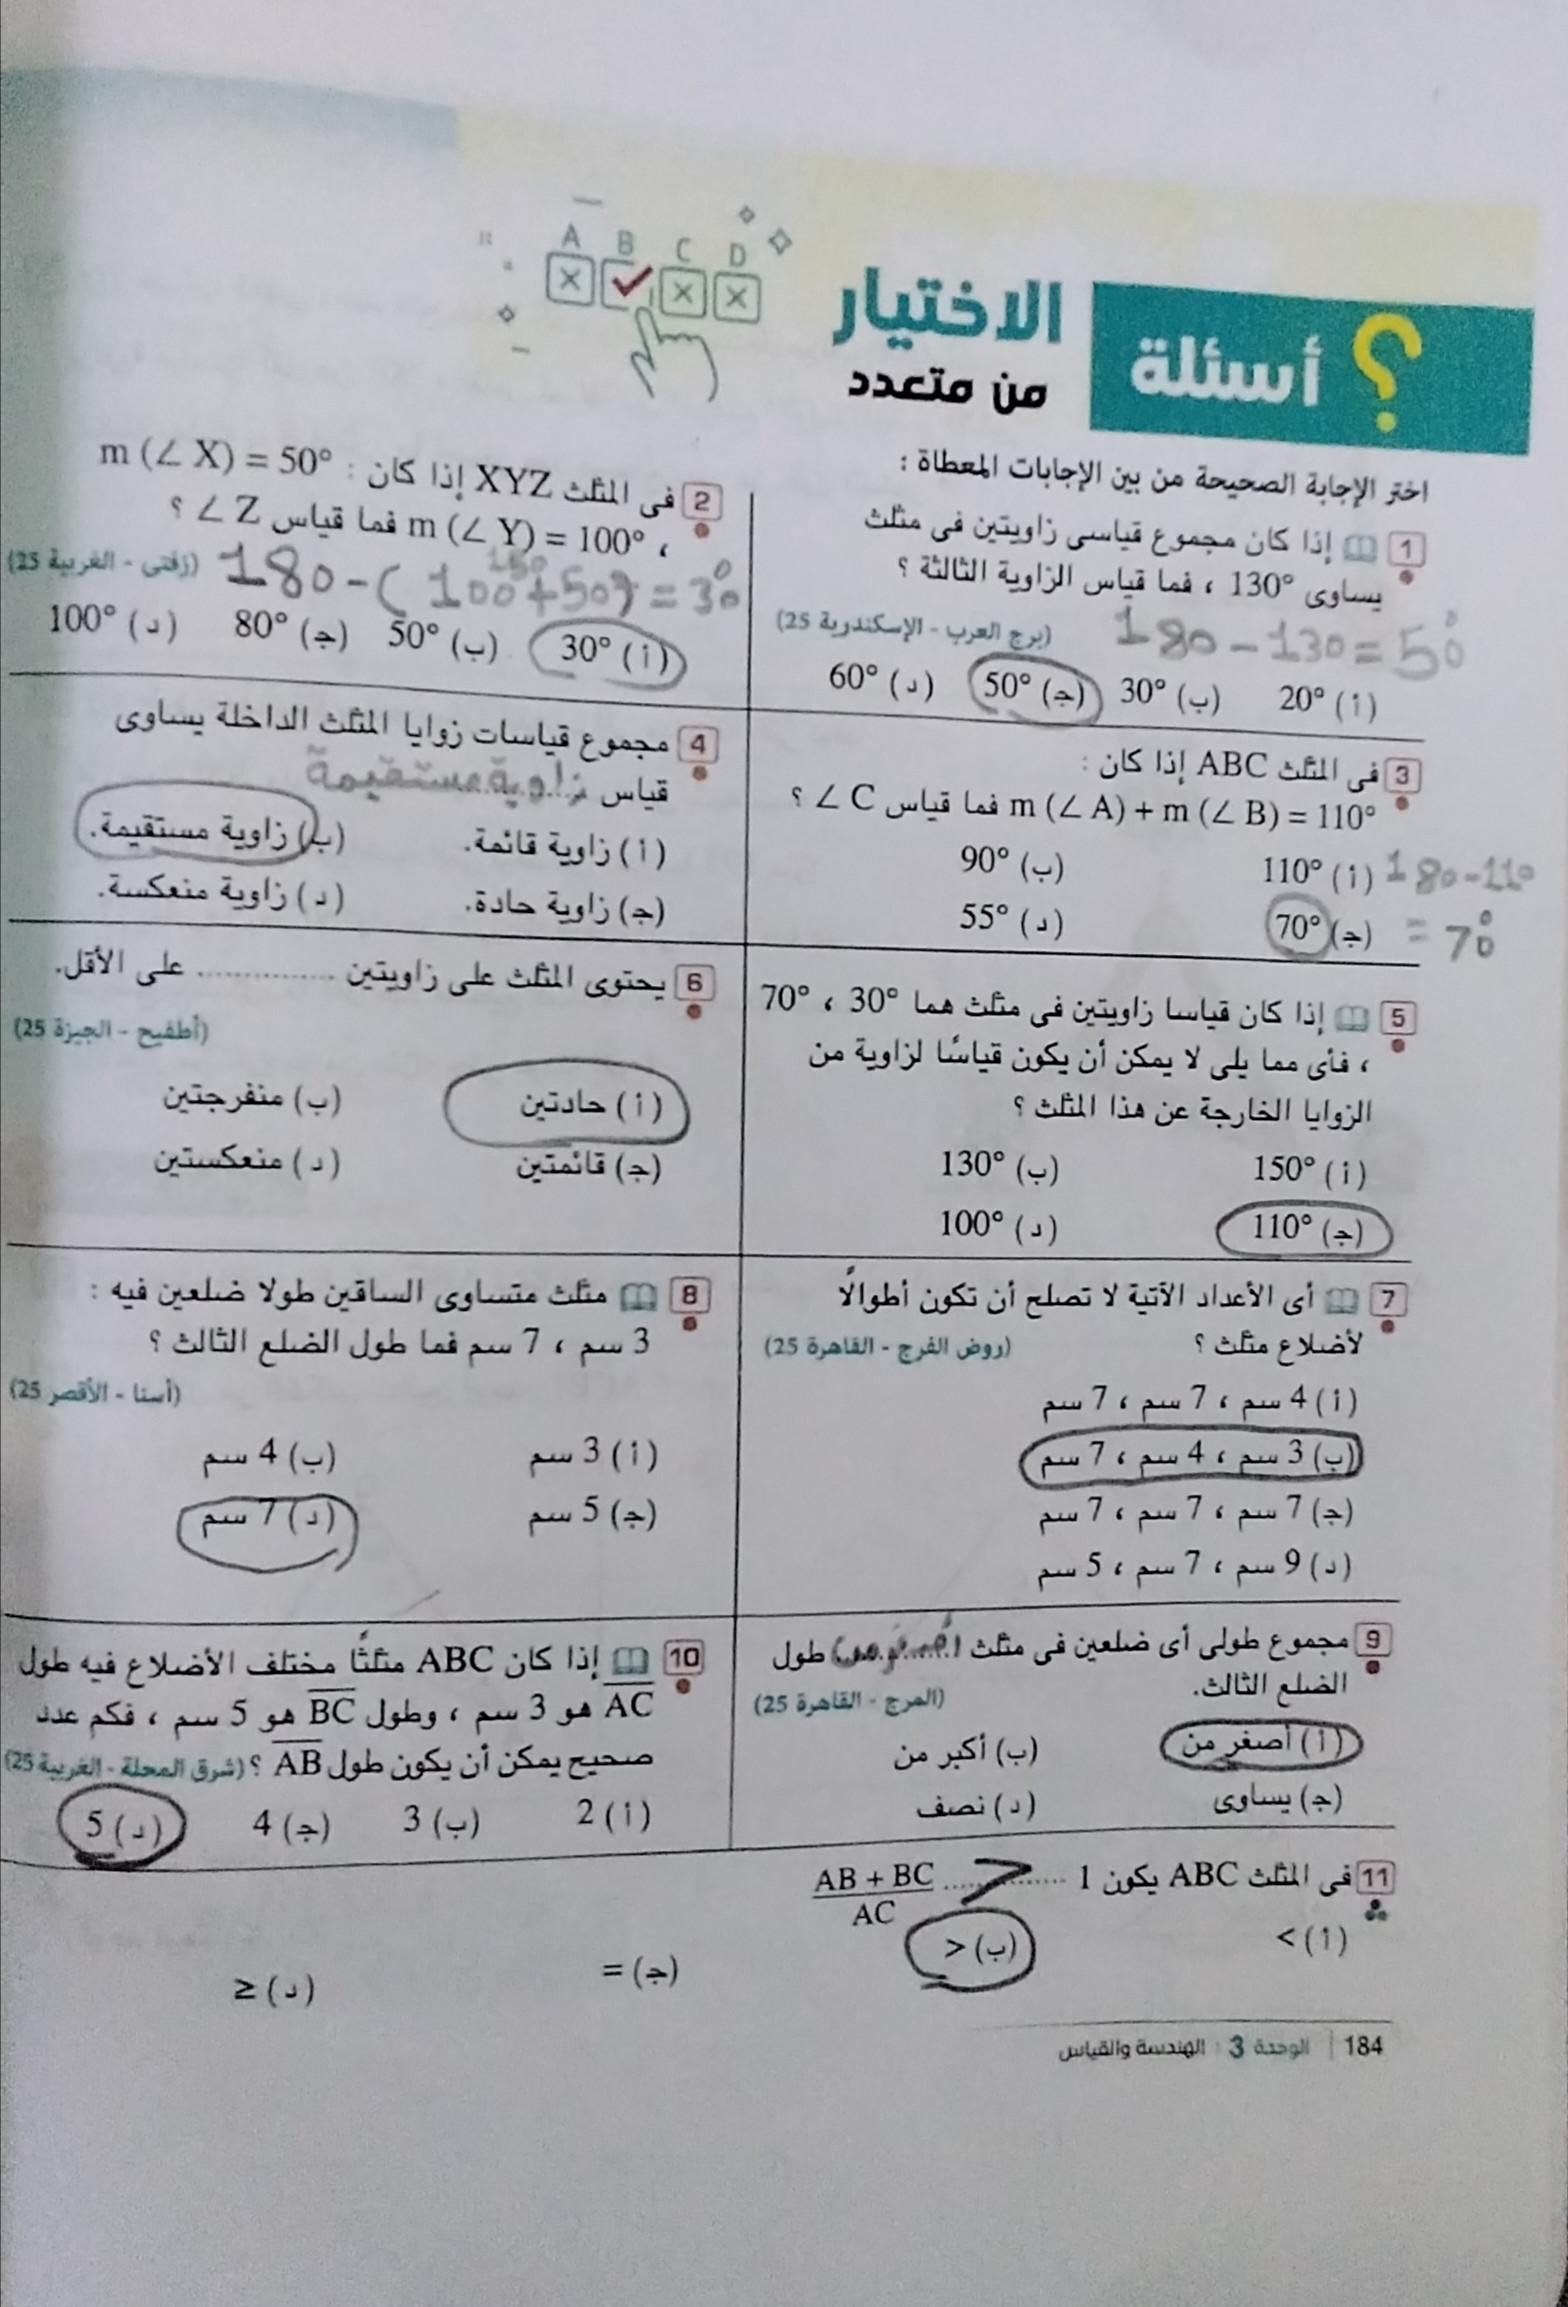 A B C D
؟ أسئلة
الاختيار
من متعدد
اختر الإجابة الصحيحة من بين الإجابات المعطاة :
1 إذا كان مجموع قياسى زاويتين فى مثلث
يساوى 130° ، فما قياس الزاوية الثالثة ؟
(برج العرب - الإسكندرية 25)
180 - 130 = 50°
(أ) 20° (ب) 30° (ج) 50° (د) 60°
2 فى المثلث XYZ إذا كان : m (∠ X) = 50°
، m (∠ Y) = 100° فما قياس ∠ Z ؟
(زفتى - الغربية 25)
150
180 - (100 + 50) = 30°
(أ) 30° (ب) 50° (ج) 80° (د) 100°
3 فى المثلث ABC إذا كان :
m (∠ A) + m (∠ B) = 110° فما قياس ∠ C ؟
(أ) 110° (ب) 90°
180 - 110
(ج) 70° (د) 55°
= 70°
4 مجموع قياسات زوايا المثلث الداخلة يساوى
قياس زاوية مستقيمة
(أ) زاوية قائمة. (ب) زاوية مستقيمة.
(ج) زاوية حادة. (د) زاوية منعكسة.
5 إذا كان قياسا زاويتين فى مثلث هما 30° ، 70°
، فأى مما يلى لا يمكن أن يكون قياسًا لزاوية من
الزوايا الخارجة عن هذا المثلث ؟
(أ) 150° (ب) 130°
(ج) 110° (د) 100°
6 يحتوى المثلث على زاويتين .............. على الأقل.
(أطفيح - الجيزة 25)
(أ) حادتين (ب) منفرجتين
(ج) قائمتين (د) منعكستين
7 أى الأعداد الآتية لا تصلح أن تكون أطوالًا
لأضلاع مثلث ؟ (روض الفرج - القاهرة 25)
(أ) 4 سم ، 7 سم ، 7 سم
(ب) 3 سم ، 4 سم ، 7 سم
(ج) 7 سم ، 7 سم ، 7 سم
(د) 9 سم ، 7 سم ، 5 سم
8 مثلث متساوى الساقين طولا ضلعين فيه :
3 سم ، 7 سم فما طول الضلع الثالث ؟
(أسنا - الأقصر 25)
(أ) 3 سم (ب) 4 سم
(ج) 5 سم (د) 7 سم
9 مجموع طولى أى ضلعين فى مثلث .............. طول
الضلع الثالث. (المرج - القاهرة 25)
(أ) أصغر من (ب) أكبر من
(ج) يساوى (د) نصف
10 إذا كان ABC مثلثًا مختلف الأضلاع فيه طول
AC هو 3 سم ، وطول BC هو 5 سم ، فكم عدد
صحيح يمكن أن يكون طول AB ؟ (شرق المحلة - الغربية 25)
(أ) 2 (ب) 3 (ج) 4 (د) 5
11 فى المثلث ABC يكون 1 ....>.... AB + BC
AC
(أ) < (ب) > (ج) = (د) ≥
184 | الوحدة 3 : الهندسة والقياس